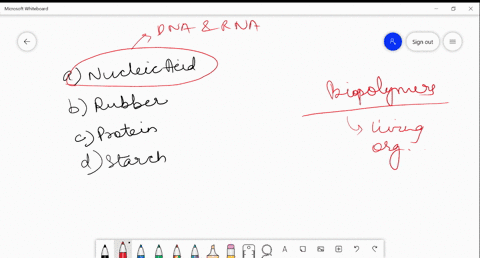 Microsoft Whiteboard
Sign out
DNA & RNA
a) Nucleic Acid
b) Rubber
c) Protein
d) Starch
Biopolymers
living
org.